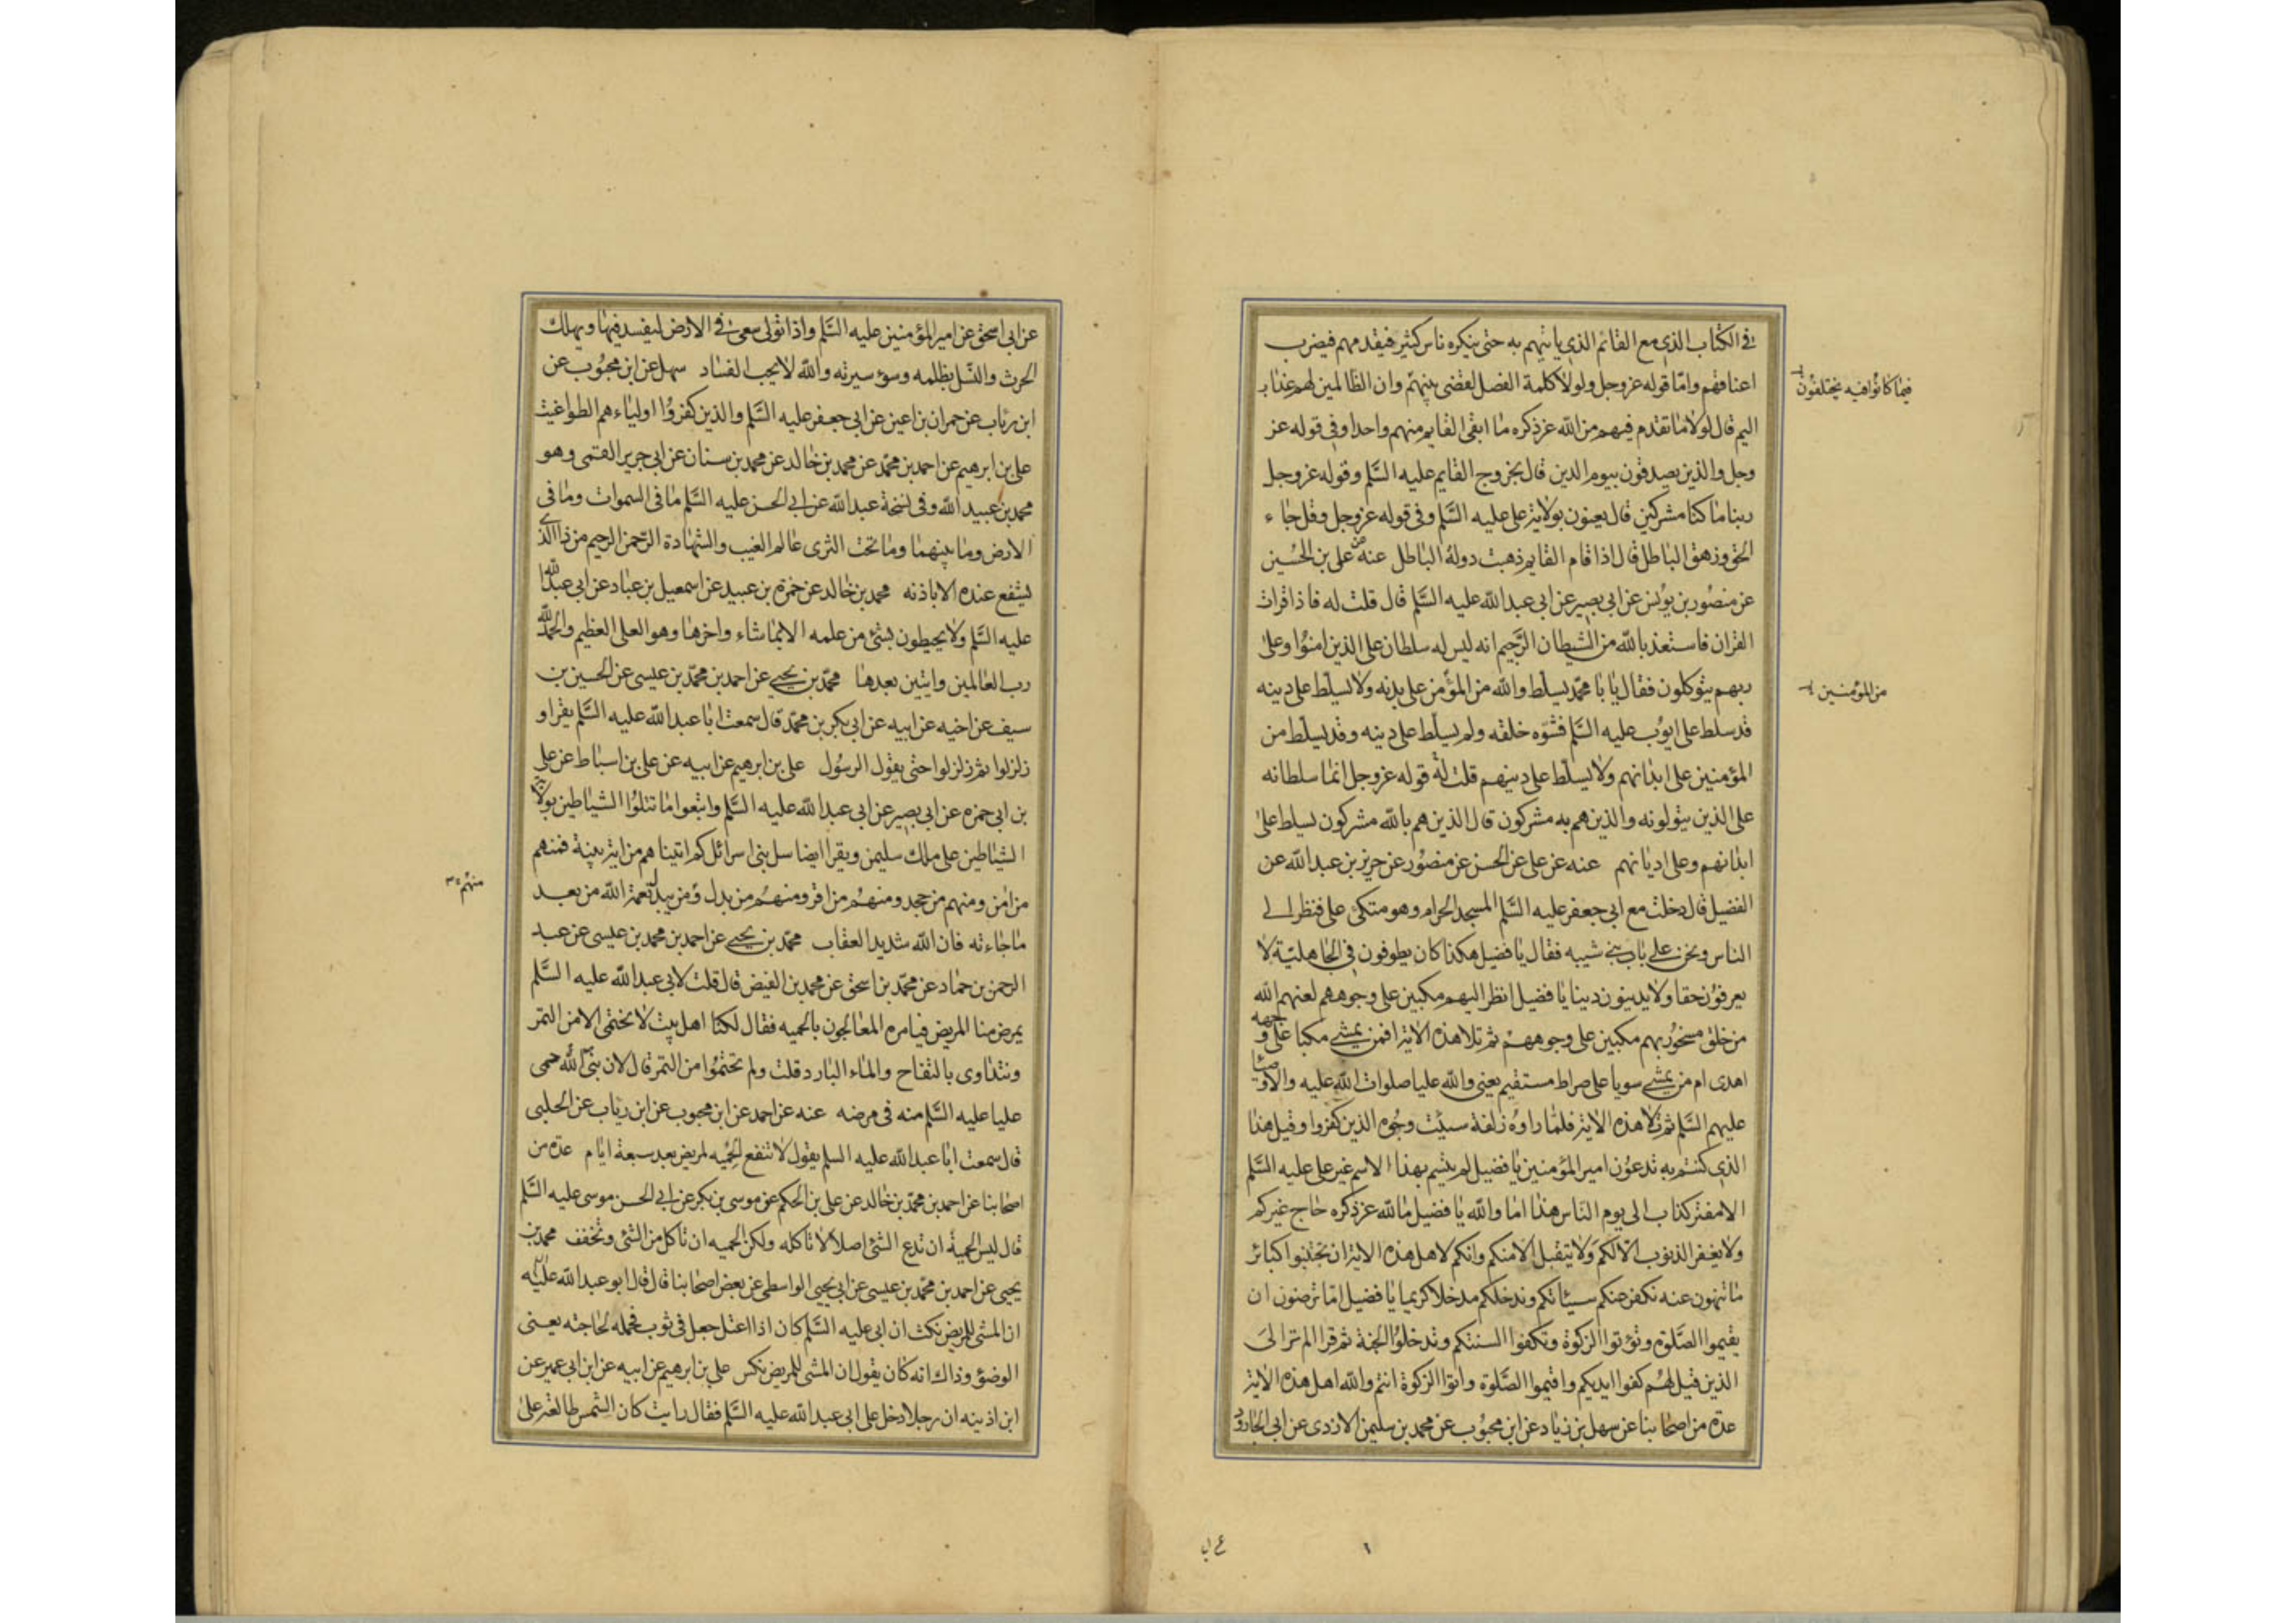 في الكتاب الذي مع القائم الذي ياتيهم به حتى ينكره ناس كثير فيقدمهم فيضرب
اعناقهم وامّا قوله عز وجل ولولا كلمة الفصل لقضى بينهم وان الظالمين لهم عذاب
فيما كانوا فيه يختلفون
اليم قال لولا ما تقدم فيهم من الله عز ذكره ما ابقى القايم منهم واحدا وفي قوله عز
وجل والذين يصدقون بيوم الدين قال بخروج القايم عليه السَّلم وقوله عز وجل
ربنا ما كنا مشركين قال يعنون بولاية على عليه السَّلم وفى قوله عز وجل وقل جاء
الحق وزهق الباطل قال اذا قام القايم ذهبت دولة الباطل عنه عن على بن الحسين
عن منصور بن يونس عن ابى بصير عن ابى عبد الله عليه السَّلم قال قلت له فاذا قرات
القران فاستعذ بالله من الشيطان الرَّجيم انه ليس له سلطان على الذين امنوا وعلى
ربهم يتوكلون فقال يا با محمّد يسلّط والله من المؤمن على بدنه ولا يسلّط على دينه
من المؤمنين
قد سلط على ايوب عليه السَّلم فشوّه خلقه ولم يسلّط على دينه وقد يسلّط من
المؤمنين على ابدانهم ولا يسلّط على دينهم قلت له قوله عز وجل انما سلطانه
على الذين يتولونه والذين هم به مشركون قال الذين هم بالله مشركون يسلط على
ابدانهم وعلى اديانهم عنه عن على عن الحسن عن منصور عن حريز بن عبد الله عن
الفضيل قال دخلت مع ابى جعفر عليه السَّلم المسجد الحرام وهو متكئ على فنظر الى
الناس ونحن على باب بنى شيبه فقال يا فضيل هكذا كان يطوفون في الجاهليّة لا
يعرفون حقا ولا يدينون دينا يا فضيل انظر اليهم مكبين على وجوههم لعنهم الله
من خلق مسخور بهم مكبين على وجوههم ثم تلا هذه الاية افمن يمشى مكبا على وجهه
اهدى ام من يمشى سويا على صراط مستقيم يعنى والله عليا صلوات الله عليه والاوصيا
عليهم السَّلم ثم تلا هذه الاية فلما راوه زلفة سيئت وجوه الذين كفروا وقيل هذا
الذى كنتم به تدعون امير المؤمنين يا فضيل لم يتسم بهذا الاسم غير على عليه السَّلم
الا مفتر كذاب الى يوم الناس هذا اما والله يا فضيل ما لله عز ذكره حاج غيركم
ولا يغفر الذنوب الا لكم ولا يتقبل الا منكم وانكم لاهل هذه الاية ان تجتنبوا كبائر
ما تنهون عنه نكفر عنكم سيئاتكم وندخلكم مدخلا كريما يا فضيل امّا ترضون ان
يقيموا الصَّلوة وتؤتوا الزكوة وتكفوا السنتكم وتدخلوا الجنة ثم قرا الم تر الى
الذين قيل لهم كفوا ايديكم واقيموا الصَّلوة واتوا الزكوة انتم والله اهل هذه الاية
عدة من اصحابنا عن سهل بن زياد عن ابن محبوب عن محمد بن سليمن الازدى عن ابى الجارود
عن ابى اسحق عن امير المؤمنين عليه السَّلم واذا تولى سعى في الارض ليفسد فيها ويهلك
الحرث والنسل بظلمه وسوء سيرته والله لا يحب الفساد سهل عن ابن محبوب عن
ابن رئاب عن حمران بن اعين عن ابى جعفر عليه السَّلم والذين كفروا اولياءهم الطواغيت
على بن ابرهيم عن احمد بن محمّد عن محمد بن خالد عن محمد بن سنان عن ابى جرير القمى وهو
محمد بن عبيد الله وفى نسخة عبد الله عن ابى الحسن عليه السَّلم ما فى السموات وما فى
الارض وما بينهما وما تحت الثرى عالم الغيب والشهادة الرّحمن الرحيم من ذا الذى
يشفع عنده الا باذنه محمد بن خالد عن حمزة بن عبيد عن اسمعيل بن عباد عن ابى عبد الله
عليه السَّلم ولا يحيطون بشئ من علمه الا بما شاء واخرها وهو العلى العظيم والحمد لله
رب العالمين وايتين بعدها محمّد بن يحيى عن احمد بن محمّد بن عيسى عن الحسين بن
سيف عن اخيه عن ابيه عن ابى بكر بن محمّد قال سمعت ابا عبد الله عليه السَّلم يقرا و
زلزلوا ثم زلزلوا حتى يقول الرسول على بن ابرهيم عن ابيه عن على بن اسباط عن على
بن ابى حمزه عن ابى بصير عن ابى عبد الله عليه السَّلم واتبعوا ما تتلوا الشياطين بولاية
الشياطين على ملك سليمن ويقرا ايضا سل بنى اسرائل كم اتيناهم من اية بينة فمنهم
من امن ومنهم من جحد ومنهم من اقر ومنهم من بدل ومن يبدل نعمة الله من بعد
منهم
ما جاءته فان الله شديد العقاب محمّد بن يحيى عن احمد بن محمد بن عيسى عن عبد
الرحمن بن حماد عن محمّد بن اسحق عن محمد بن الفيض قال قلت لابى عبد الله عليه السَّلم
يمرض منا المريض فيامره المعالجون بالحميه فقال لكنا اهل بيت لا نحتمى الا من التمر
ونتداوى بالتفاح والماء البارد قلت ولم تحتموا من التمر قال لان نبى الله حمى
عليا عليه السَّلم منه فى مرضه عنه عن احمد عن ابن محبوب عن ابن رئاب عن الحلبى
قال سمعت ابا عبد الله عليه السلم يقول لا تنفع الحميه لمريض بعد سبعة ايام عدة من
اصحابنا عن احمد بن محمّد بن خالد عن على بن الحكم عن موسى بن بكر عن ابى الحسن موسى عليه السَّلم
قال ليس الحمية ان تدع الشئ اصلا لا تاكله ولكن الحميه ان تاكل من الشئ وتخفف محمد بن
يحيى عن احمد بن محمّد بن عيسى عن ابى يحيى الواسطى عن بعض اصحابنا قال قال ابو عبد الله عليه
ان المشى للمريض نكث ان ابى عليه السَّلم كان اذا اعتل جعل فى ثوب فحمله لحاجته يعنى
الوضؤ وذاك انه كان يقول ان المشى للمريض نكس على بن ابرهيم عن ابيه عن ابن ابى عمير عن
ابن اذينه ان رجلا دخل على ابى عبد الله عليه السَّلم فقال رايت كان الشمس طالعة على